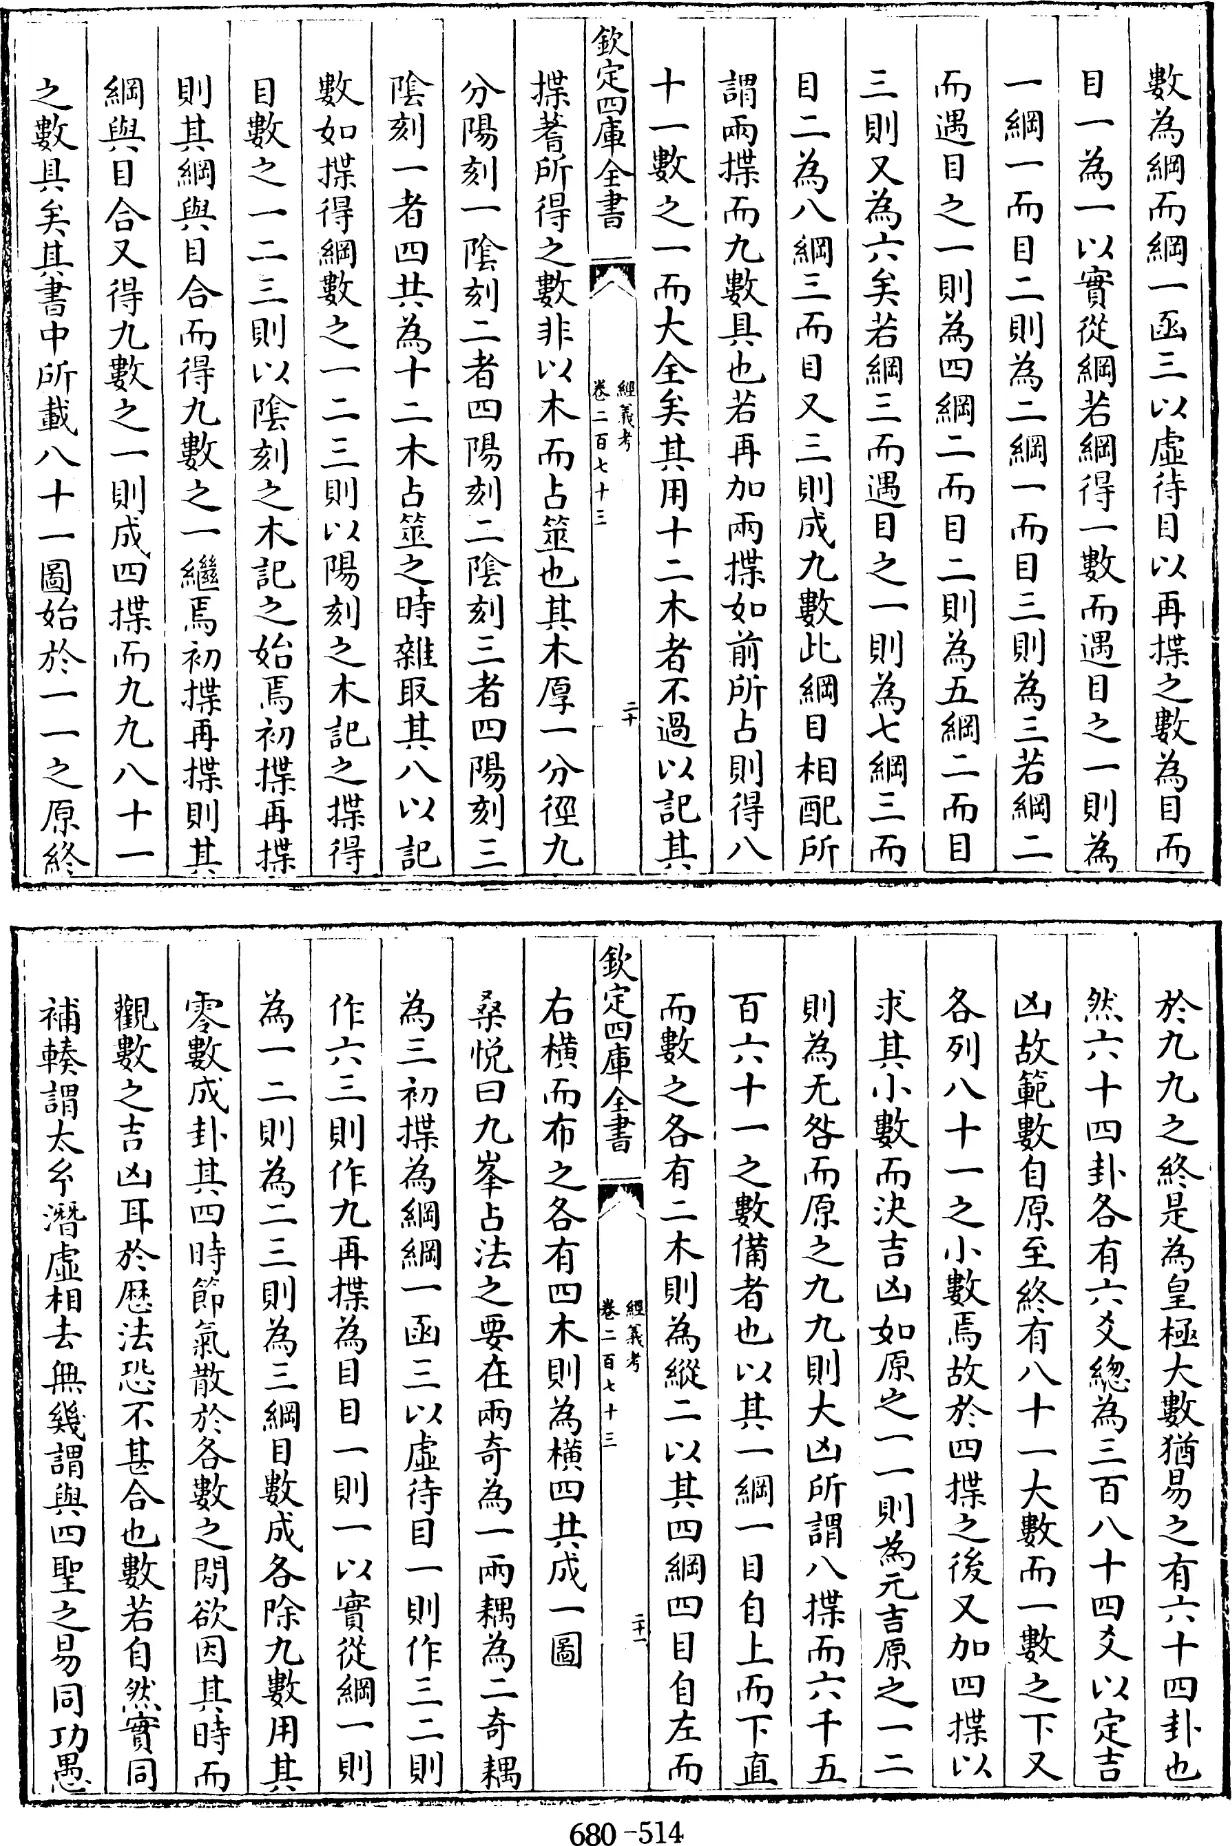 數為綱而綱一函三以虛待目以再揲之數為目而
目一為一以實從綱若綱得一數而遇目之一則為
一綱一而目二則為二綱一而目三則為三若綱二
而遇目之一則為四綱二而目二則為五綱二而目
三則又為六矣若綱三而遇目之一則為七綱三而
目二為八綱三而目又三則成九數此綱目相配所
謂兩揲而九數具也若再加兩揲如前所占則得八
十一數之一而大全矣其用十二木者不過以記其
欽定四庫全書
經義考
卷二百七十三
二十
揲蓍所得之數非以木而占筮也其木厚一分徑九
分陽刻一陰刻二者四陽刻二陰刻三者四陽刻三
陰刻一者四共為十二木占筮之時雜取其八以記
數如揲得綱數之一二三則以陽刻之木記之揲得
目數之一二三則以陰刻之木記之始焉初揲再揲
則其綱與目合而得九數之一繼焉初揲再揲則其
綱與目合又得九數之一則成四揲而九九八十一
之數具矣其書中所載八十一圖始於一一之原終
於九九之終是為皇極大數猶易之有六十四卦也
然六十四卦各有六爻總為三百八十四爻以定吉
凶故範數自原至終有八十一大數而一數之下又
各列八十一之小數焉故於四揲之後又加四揲以
求其小數而決吉凶如原之一一則為元吉原之一二
則為无咎而原之九九則大凶所謂八揲而六千五
百六十一之數備者也以其一綱一目自上而下直
而數之各有二木則為縱二以其四綱四目自左而
欽定四庫全書
經義考
卷二百七十三
二十一
右橫而布之各有四木則為橫四共成一圖
桑悅曰九峯占法之要在兩奇為一兩耦為二奇耦
為三初揲為綱綱一函三以虛待目一則作三二則
作六三則作九再揲為目目一則一以實從綱一則
為一二則為二三則為三綱目數成各除九數用其
零數成卦其四時節氣散於各數之間欲因其時而
觀數之吉凶耳於歷法恐不甚合也數若自然實同
補輳謂太玄潛虛相去無幾謂與四聖之易同功愚
680-514